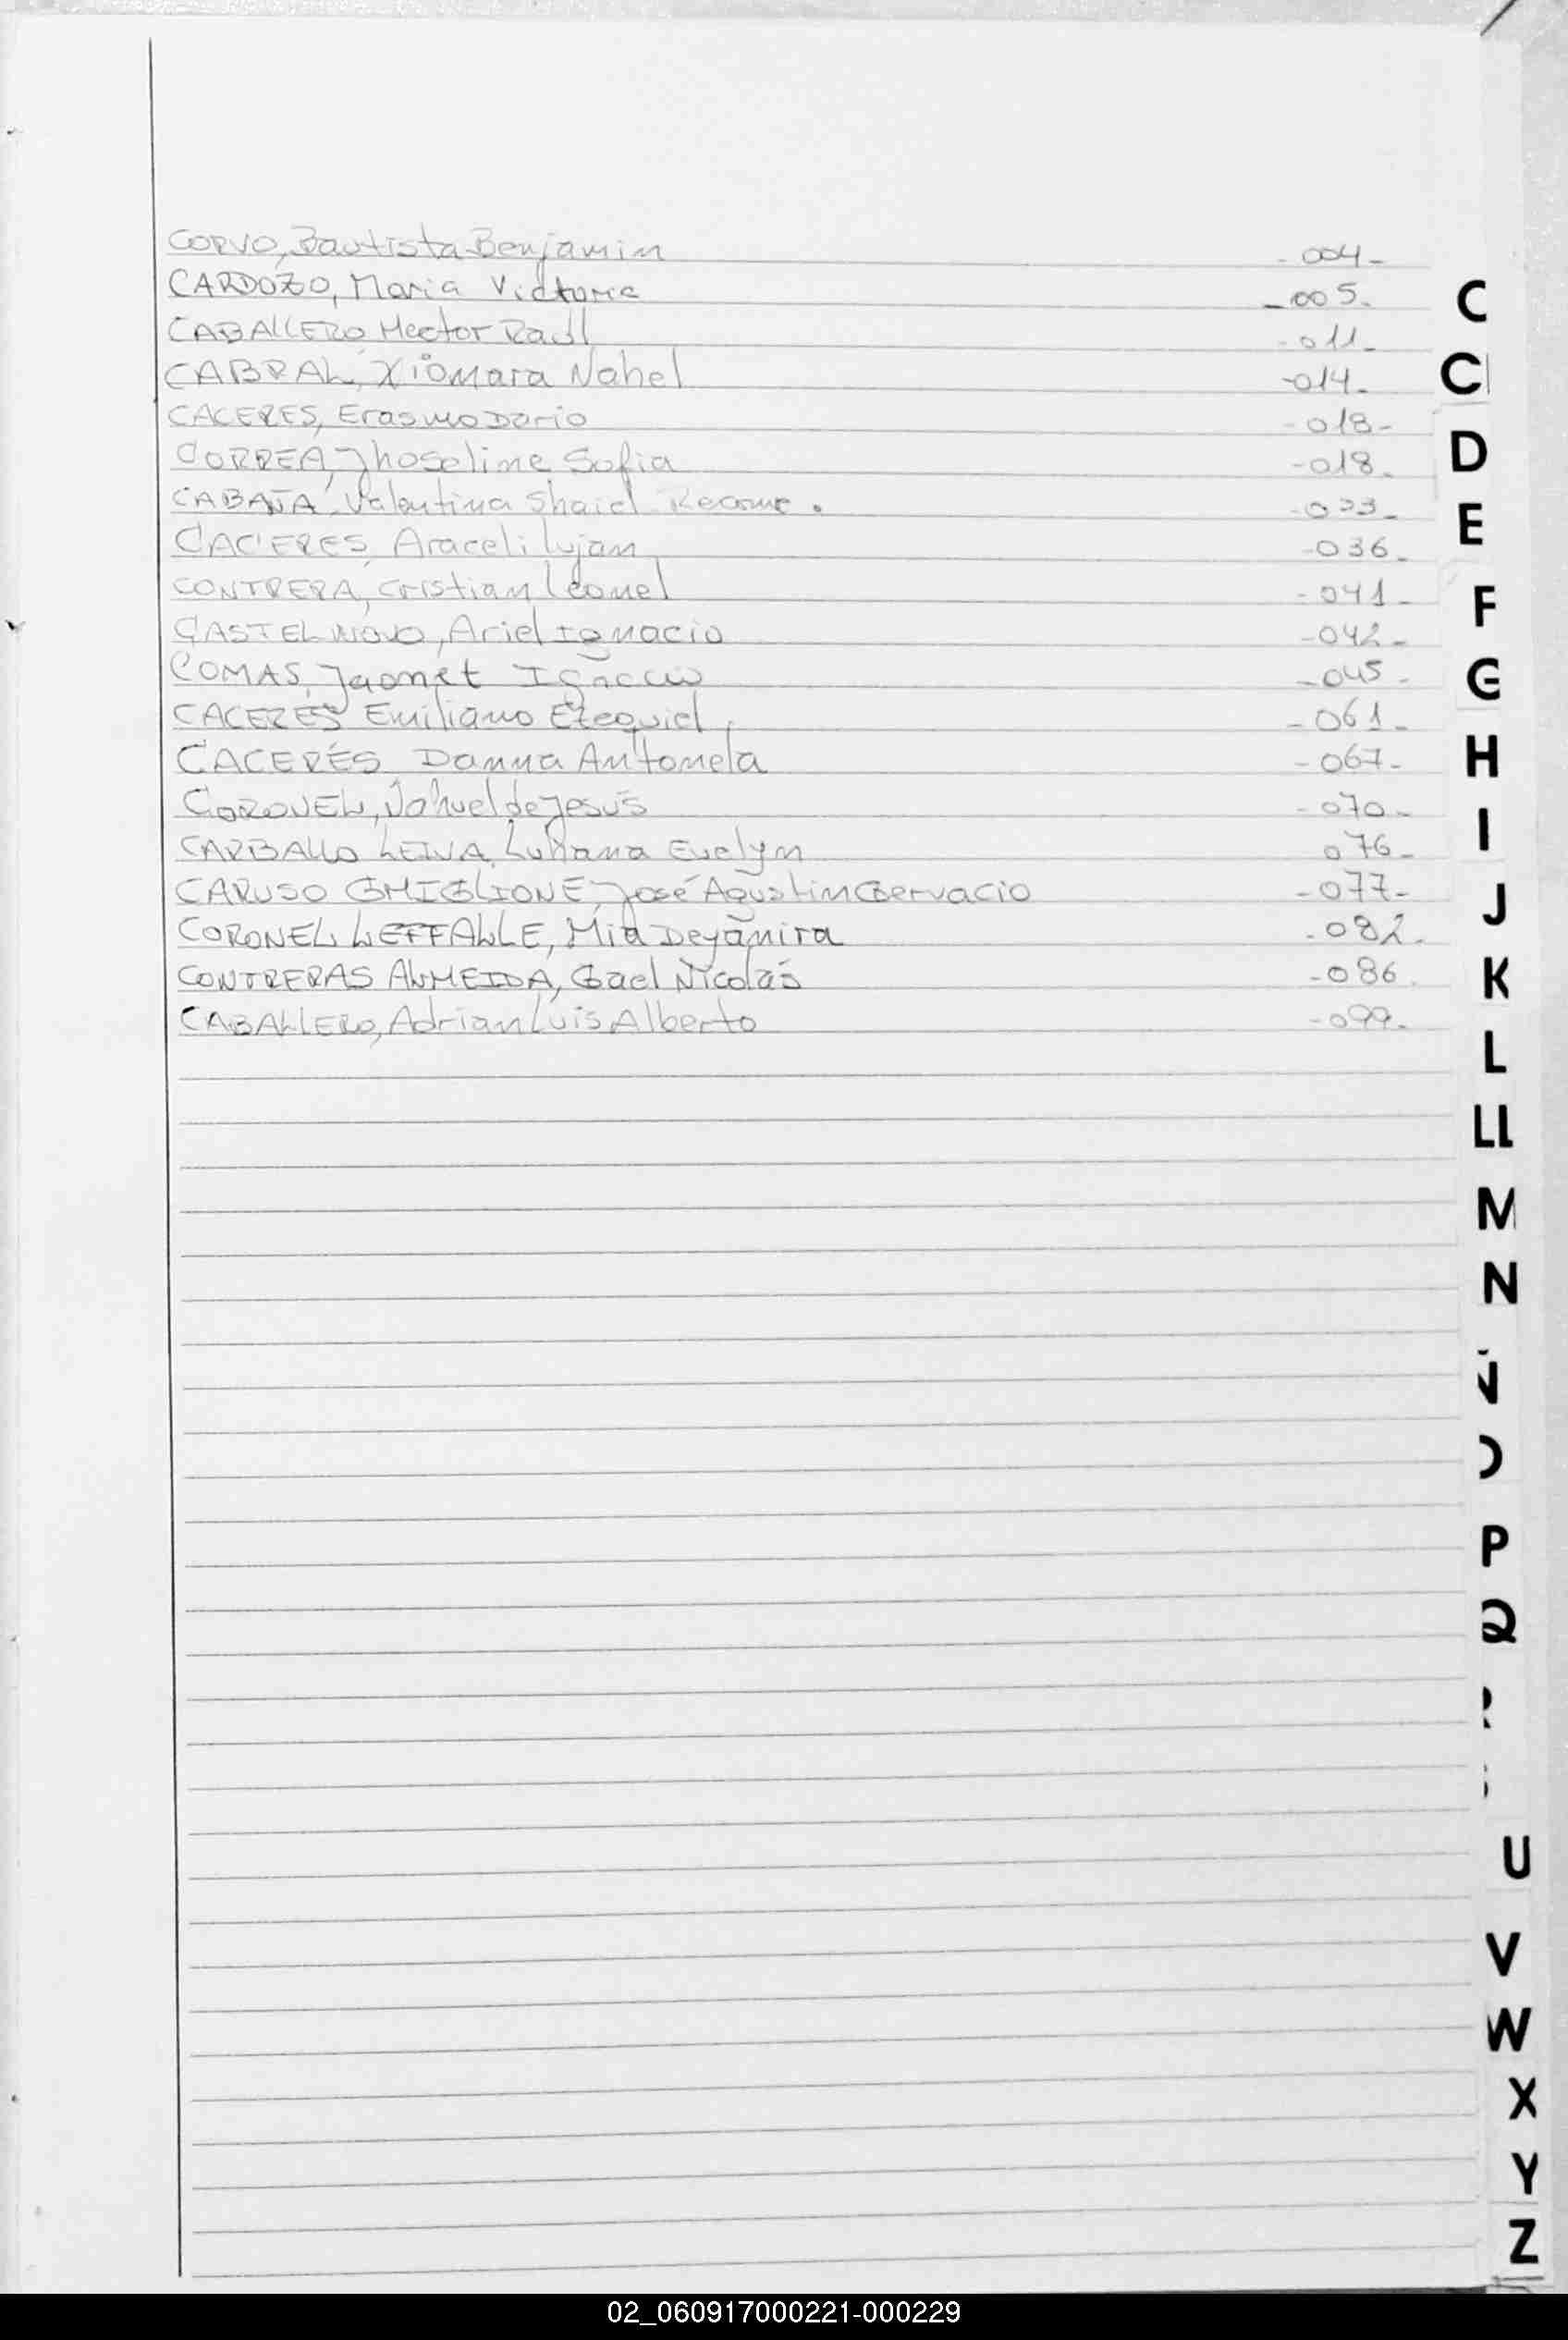 CORVO, Bautista Benjamin - 004 -
CARDOZO, Maria Victoria - 005.
CABALLERO Hector Raúl - 011 -
CABRAL, Xiomara Nahel - 014 -
CACERES, Erasmo Dario - 018 -
CORREA, Jhoseline Sofia - 018 -
Valentina
CACERES, Araceli Lujan - 036 -
CONTRERA, Cristian Leonel - 041 -
CASTELNOVO, Ariel Ignacio - 042 -
COMAS, Ignacio - 045 -
CACERES Emiliano Ezequiel - 061 -
CACERES Danna Antonela - 067 -
CORONEL, Nahuel de Jesús - 070 -
CARBALLO LEIVA, Evelyn 076 -
CARUSO GHIGLIONE, José Agustin Gervacio - 077 -
CORONEL LEFFALLE, Mia Deyanira - 082 -
CONTRERAS ALMEIDA, Gael Nicolás - 086 -
CABALLERO, Adrian Luis Alberto - 099 -
C
C
D
E
F
G
H
I
J
K
L
LL
M
N
Ñ
O
P
Q
U
V
W
X
Y
Z
02_060917000221-000229